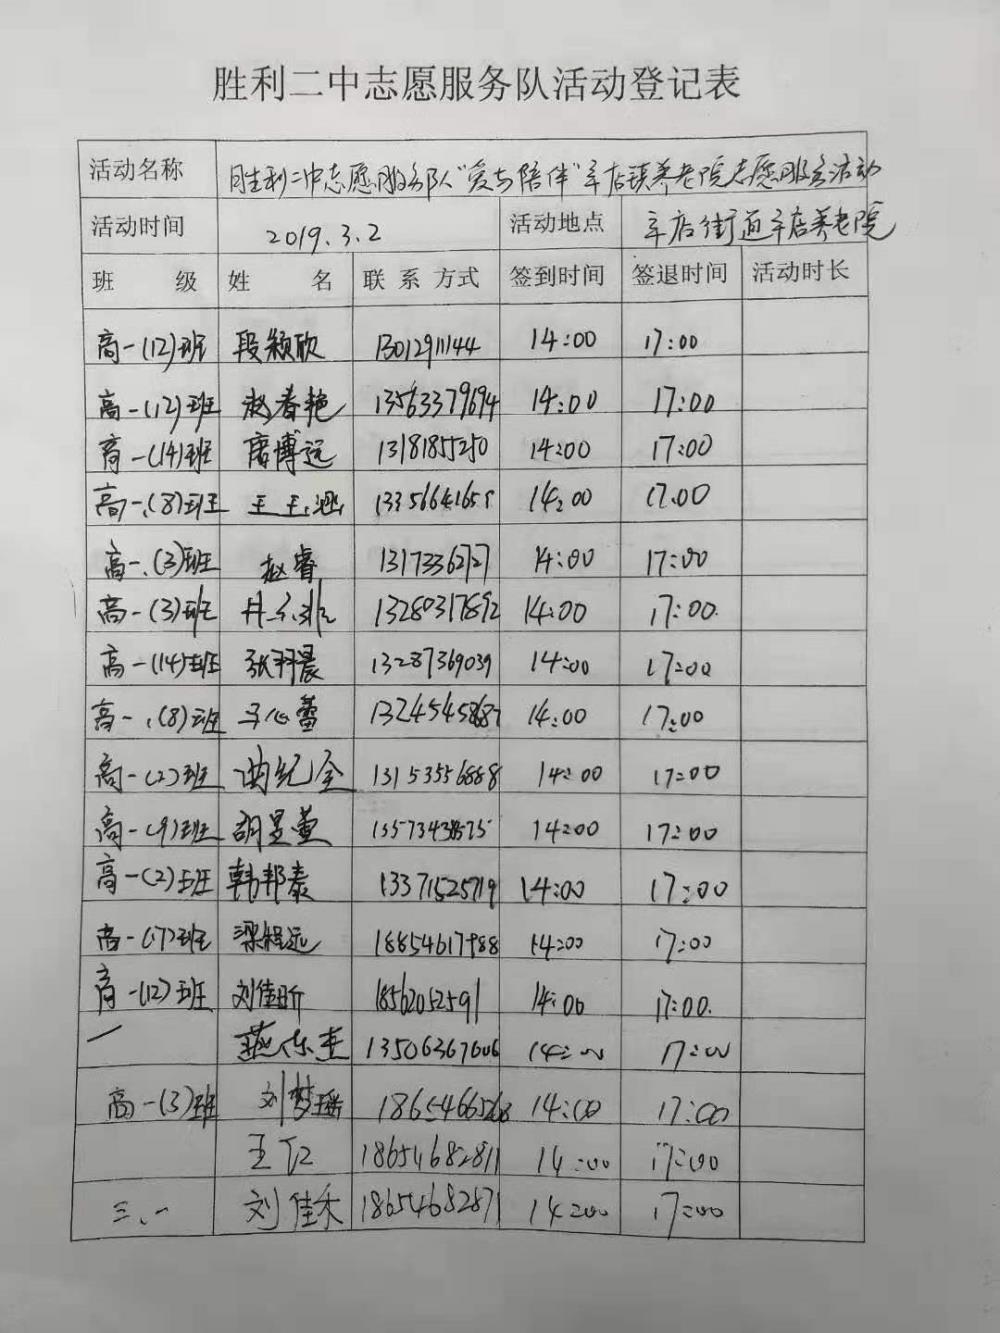 胜利二中志愿服务队活动登记表
活动名称 胜利二中志愿服务队"爱与陪伴"辛店镇养老院志愿服务活动
活动时间 2019.3.2 活动地点 辛店街道辛店养老院
班 级 姓 名 联系方式 签到时间 签退时间 活动时长
高一(12)班 段颖欣 13012911144 14:00 17:00
高一(12)班 赵春艳 13563379694 14:00 17:00
高一(14)班 唐博远 13181855250 14:00 17:00
高一.(8)班 王玉涵 1335664165 14:00 17:00
高一.(3)班 赵睿 13173362727 14:00 17:00
高一(3)班 13280317892 14:00 17:00
高一(14)班 张羽晨 13287369039 14:00 17:00
高一.(8)班 马心蕾 13245458687 14:00 17:00
高一(2)班 曲纪全 13153556888 14:00 17:00
高一(9)班 胡昱萱 14:00 17:00
高一(2)班 韩邦泰 13371525719 14:00 17:00
高一(7)班 梁程远 18854617988 14:00 17:00
高一(12)班 刘佳昕 18562052591 14:00 17:00
一 燕 13506367606 14:00 17:00
高一(3)班 刘梦瑶 14:00 17:00
王 18654682811 14:00 17:00
三.一 刘佳禾 18654682871 14:00 17:00